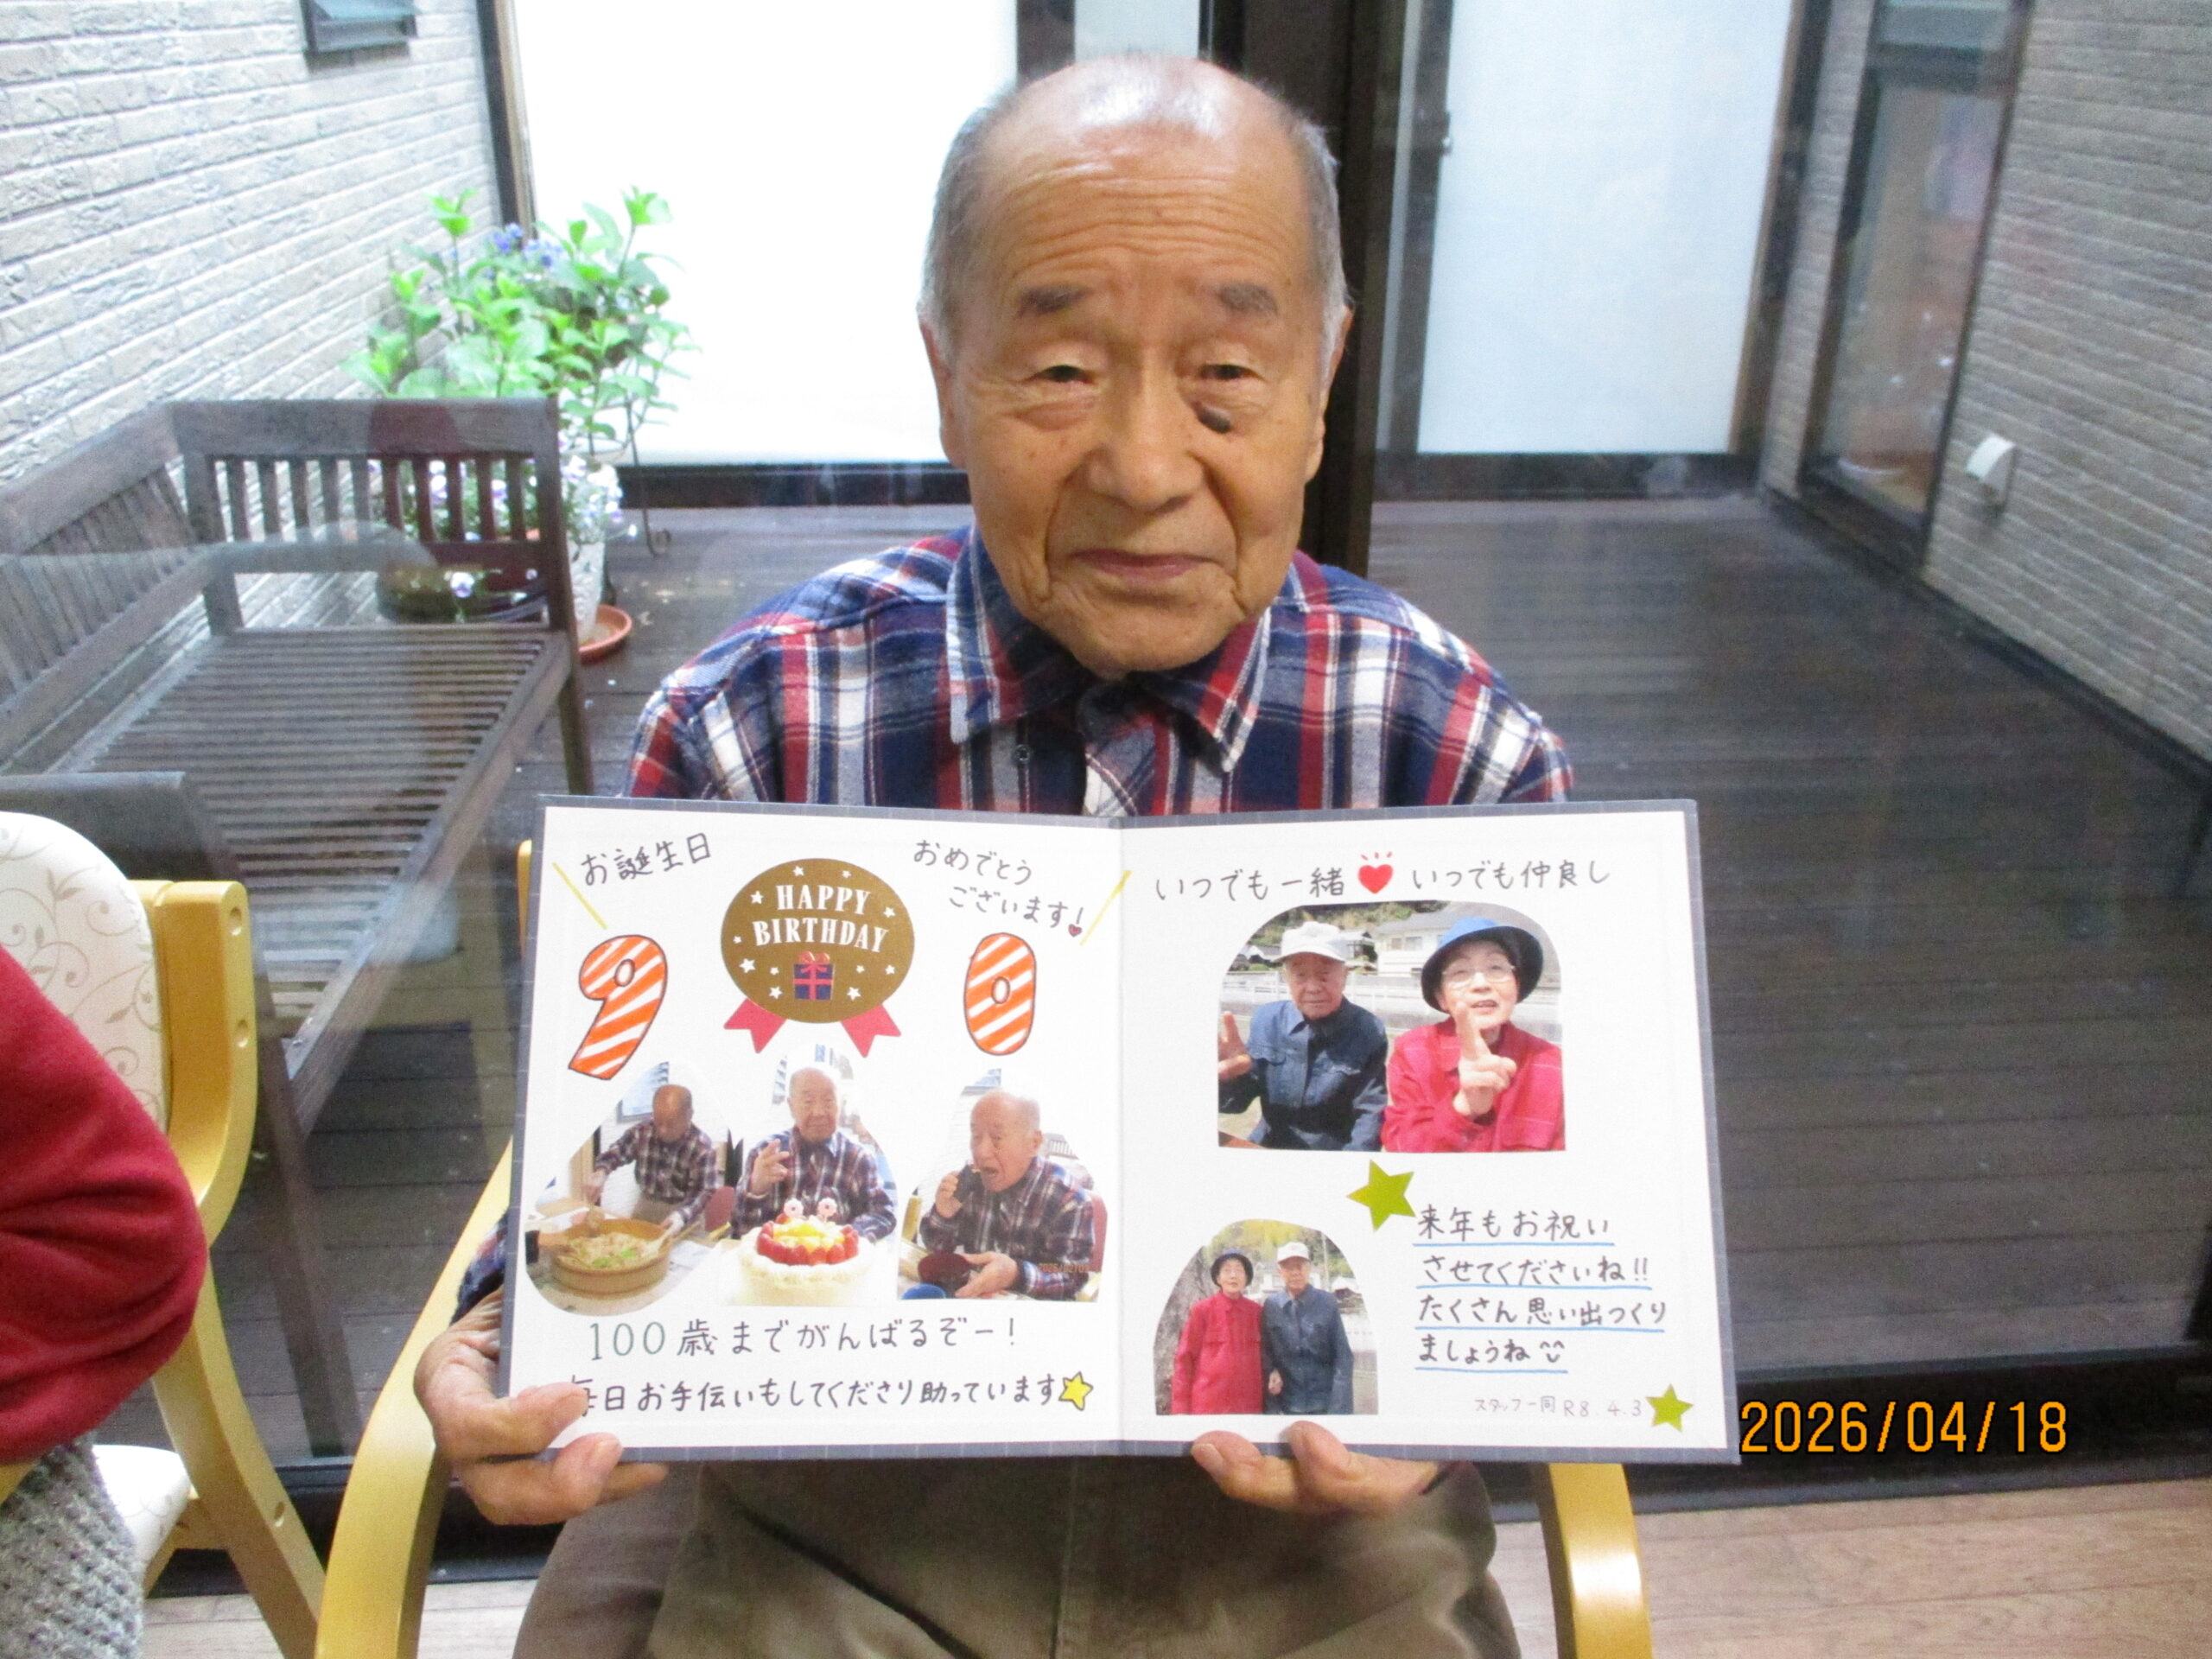 お誕生日
おめでとう
ございます!
HAPPY
BIRTHDAY
90
100歳までがんばるぞー!
毎日お手伝いもしてくださり助っています
いつでも一緒 いつでも仲良し
来年もお祝い
させてくださいね!!
たくさん思い出つくり
ましょうね
スタッフ一同 R8.4.3
2026/04/18